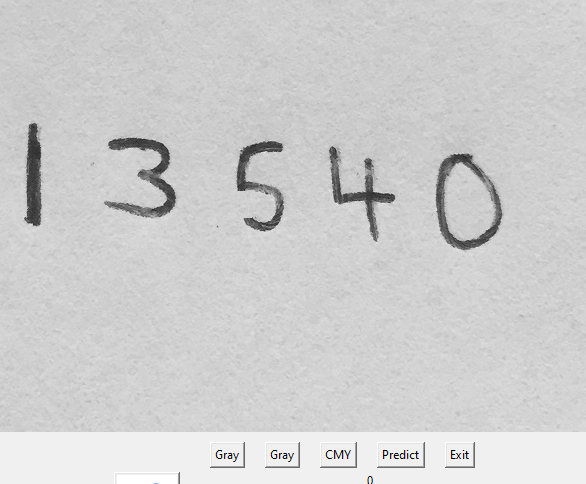 1 3 5 4 0
Gray Gray CMY Predict Exit
0